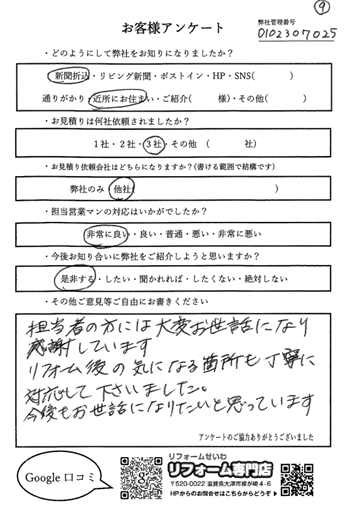 ⑨
お客様アンケート
弊社管理番号
0102307025
・どのようにして弊社をお知りになりましたか？
新聞折込・リビング新聞・ポストイン・HP・SNS(　　　)
通りがかり・近所にお住まい・ご紹介(　　　様)・その他(　　　)
・お見積りは何社依頼されましたか？
1社・2社・3社・その他 (　　　社)
・お見積り依頼会社はどちらになりますか？(書ける範囲で結構です)
弊社のみ・他社(　　　)
・担当営業マンの対応はいかがでしたか？
非常に良い・良い・普通・悪い・非常に悪い
・今後お知り合いに弊社をご紹介しようと思いますか？
是非する・したい・聞かれれば・したくない・絶対しない
・その他ご意見等ご自由にお書きください
担当者の方には大変お世話になり
感謝しています
リフォーム後の気になる箇所も丁寧に
対応して下さいました。
今後もお世話になりたいと思っています
アンケートのご協力ありがとうございました
Google 口コミ
リフォームせいわ
リフォーム専門店
〒520-0022 滋賀県大津市柳が崎4-6
HPからのお問合せはこちらからどうぞ